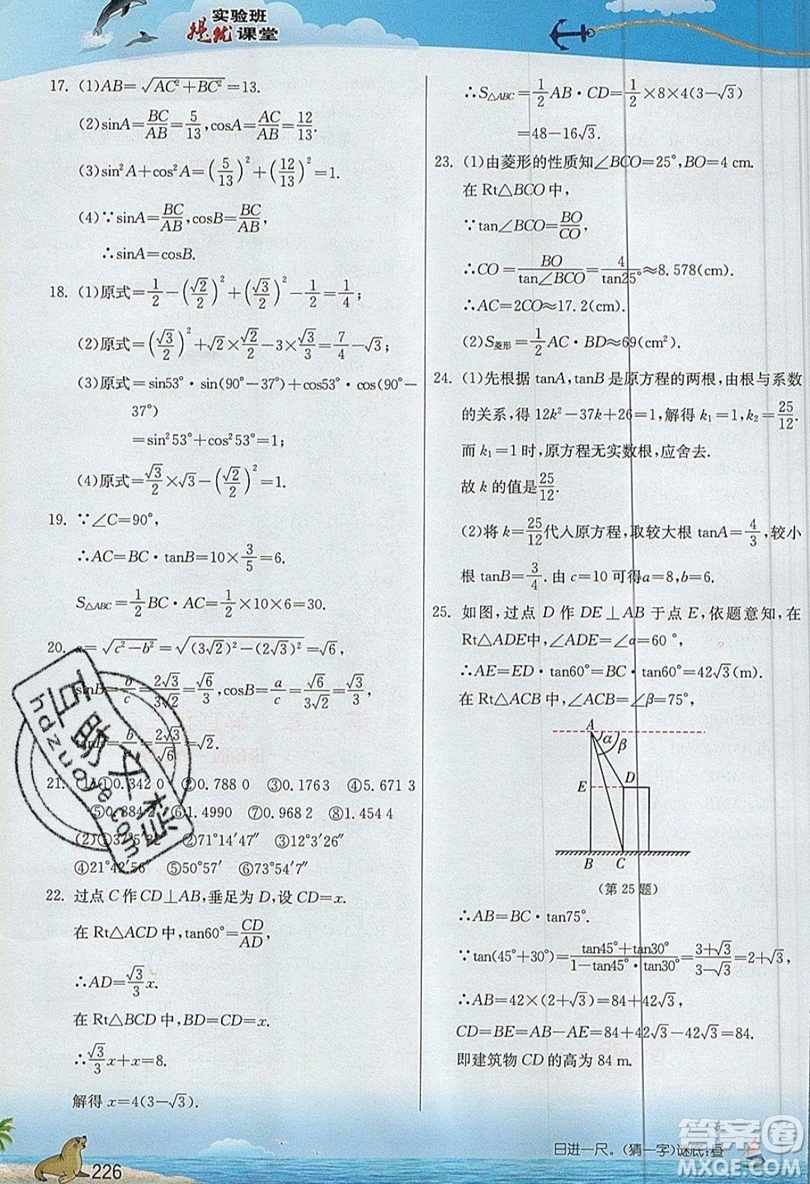 实验班
提优课堂
17. (1)AB=√(AC²+BC²)=13.
(2)sinA=BC/AB=5/13,cosA=AC/AB=12/13.
(3)sin²A+cos²A=(5/13)²+(12/13)²=1.
(4)∵sinA=BC/AB,cosB=BC/AB,
∴sinA=cosB.
18. (1)原式=1/2-(√2/2)²+(√3/2)²-1/2=1/4;
(2)原式=(√3/2)²+√2×√2/2-3×√3/3=7/4-√3;
(3)原式=sin53°·sin(90°-37°)+cos53°·cos(90°-
37°)
=sin²53°+cos²53°=1;
(4)原式=√3/2×√3-(√2/2)²=1.
19. ∵∠C=90°,
∴AC=BC·tanB=10×3/5=6.
S△ABC=1/2BC·AC=1/2×10×6=30.
20. =√(c²-b²)=√((3√2)²-(2√3)²)=√6,
sinB=b/c=2√3/3√2=√6/3,cosB=a/c=√6/3√2=√3/3,
=b/a=2√3/√6=√2.
21. (1)①0.342 0 ②0.788 0 ③0.1763 ④5.671 3
⑤0.884 2 ⑥1.4990 ⑦0.968 2 ⑧1.454 4
(2)①37°5′2″ ②71°14′47″ ③12°3′26″
④21°42′56″ ⑤50°57′ ⑥73°54′50″
22. 过点C作CD⊥AB,垂足为D,设CD=x.
在Rt△ACD中,tan60°=CD/AD,
∴AD=√3/3x.
在Rt△BCD中,BD=CD=x.
∴√3/3x+x=8.
解得x=4(3-√3).
∴S△ABC=1/2AB·CD=1/2×8×4(3-√3)
=48-16√3.
23. (1)由菱形的性质知∠BCO=25°,BO=4 cm.
在Rt△BCO中,
∵tan∠BCO=BO/CO,
∴CO=BO/tan∠BCO=4/tan25°≈8.578(cm).
∴AC=2CO≈17.2(cm).
(2)S菱形=1/2AC·BD≈69(cm²).
24. (1)先根据tanA,tanB是原方程的两根,由根与系数
的关系,得12k²-37k+26=1,解得k₁=1,k₂=25/12.
而k₁=1时,原方程无实数根,应舍去.
故k的值是25/12.
(2)将k=25/12代入原方程,取较大根tanA=4/3,较小
根tanB=3/4.由c=10可得a=8,b=6.
25. 如图,过点D作DE⊥AB于点E,依题意知,在
Rt△ADE中,∠ADE=∠α=60°,
∴AE=ED·tan60°=BC·tan60°=42√3(m).
在Rt△ACB中,∠ACB=∠β=75°,
A
α
β
E
D
B
C
(第25题)
∴AB=BC·tan75°.
∵tan(45°+30°)=(tan45°+tan30°)/(1-tan45°·tan30°)=(3+√3)/(3-√3)=2+√3,
∴AB=42×(2+√3)=84+42√3,
CD=BE=AB-AE=84+42√3-42√3=84.
即建筑物CD的高为84 m.
互助文档
hdzuoye.com
226
日进一尺。(猜一字)谜底:昼
答案圈
MXQE.COM